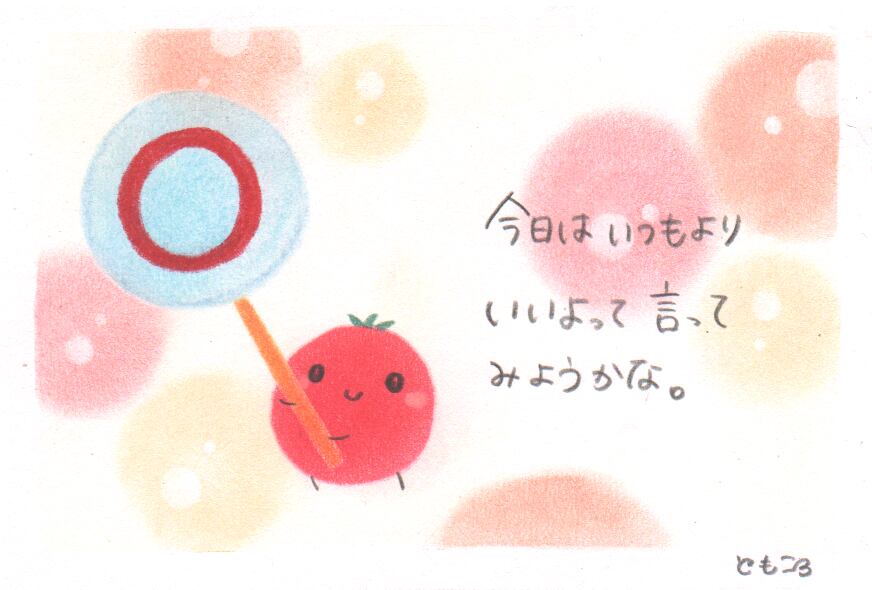 今日は いつもより
いいよって 言って
みようかな。
ともころ